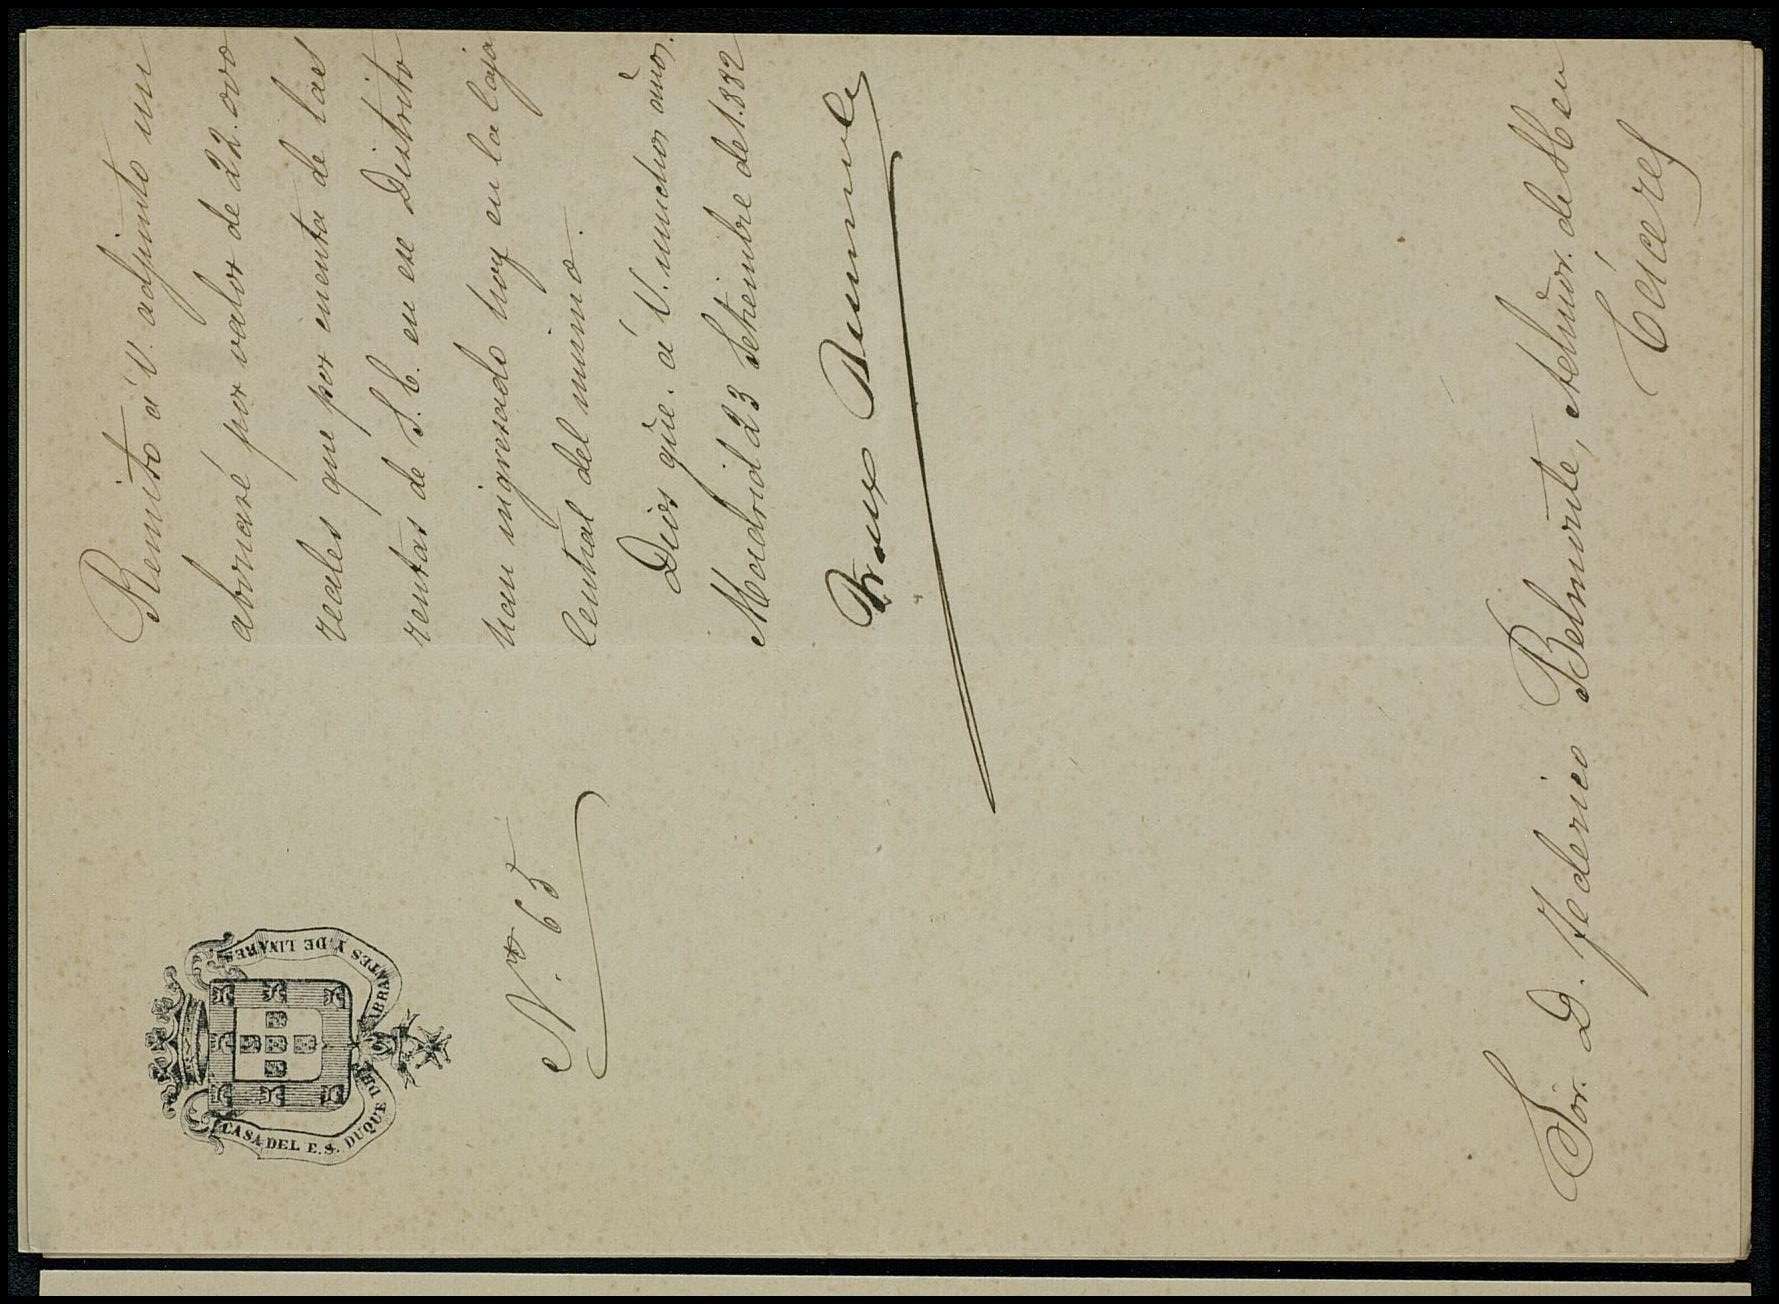 CASA DEL E. S. DUQUE DE ABRANTES Y DE LINARES
N.º 65
Remito á V. adjunto un
abonaré por valor de 22.000
reales que por cuenta de las
rentas de S. E. en ese Distrito
han ingresado hoy en la Caja
Central del mismo.
Dios gũe. á V. muchos años.
Madrid 23 Setiembre de 1.882
Sor. D. Federico Belmonte, Admor. de S. E. en
Cáceres